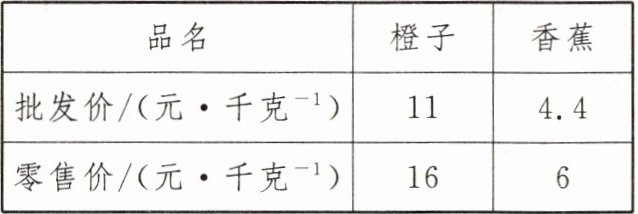 品名 橙子 香蕉
批发价/(元·千克⁻¹) 11 4.4
零售价/(元·千克⁻¹) 16 6